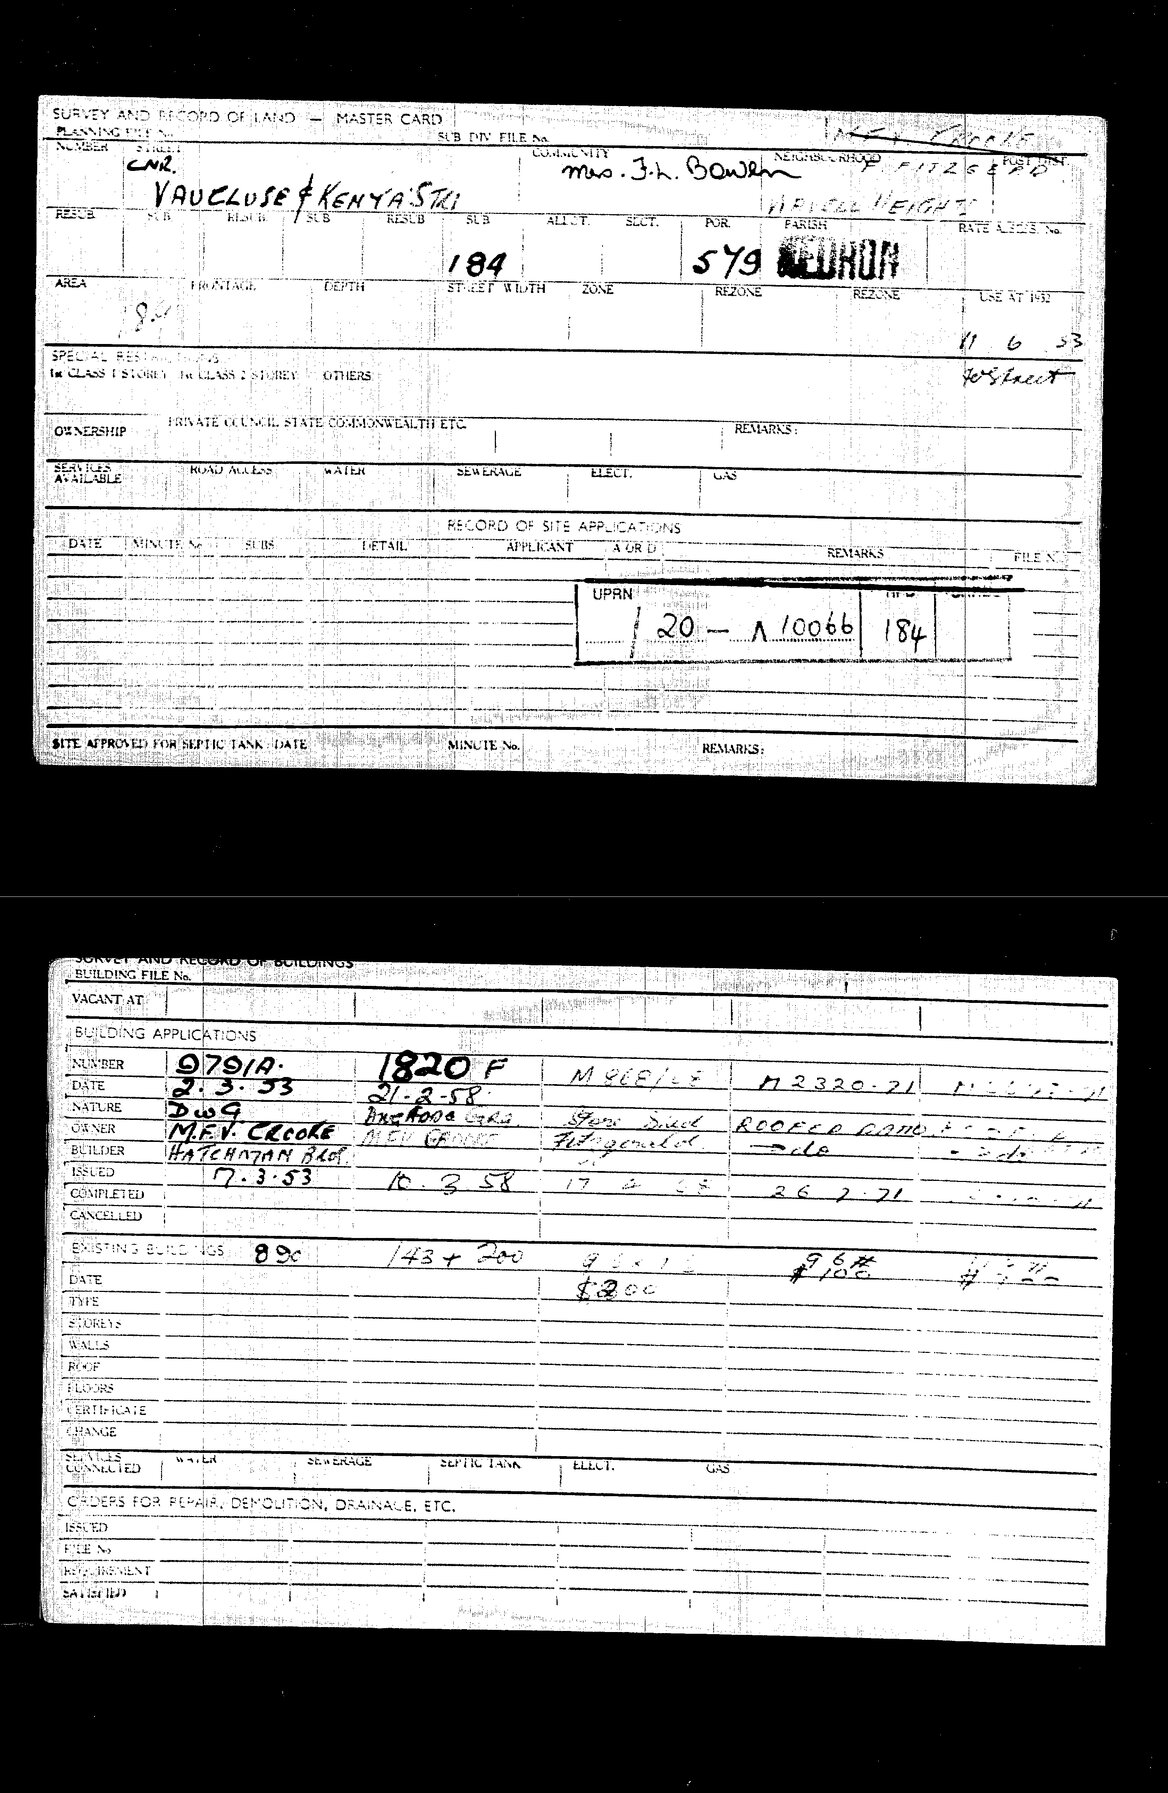 SURVEY AND RECORD OF LAND — MASTER CARD
PLANNING FILE No. SUB DIV FILE No. CROOKE
NUMBER STREET COMMUNITY NEIGHBOURHOOD POST DIST.
CNR. Mrs. F.L. Bowen F. FITZGERALD
VAUCLUSE & KENYA STS HEIGHTS
RESUB. SUB RESUB SUB RESUB SUB ALLOT. SECT. POR. PARISH RATE ASSESS. No.
184 579
AREA FRONTAGE DEPTH STREET WIDTH ZONE REZONE REZONE USE AT 1932
11 6 53
SPECIAL RESTRICTIONS
1st CLASS 1 STOREY 1st CLASS 2 STOREY OTHERS
OWNERSHIP PRIVATE COUNCIL STATE COMMONWEALTH ETC. REMARKS:
SERVICES AVAILABLE ROAD ACCESS WATER SEWERAGE ELECT. GAS
RECORD OF SITE APPLICATIONS
DATE MINUTE No. SUBS DETAIL APPLICANT A OR D REMARKS FILE No.
UPRN
/ 20 — 10066 184
SITE APPROVED FOR SEPTIC TANK: DATE MINUTE No. REMARKS:
SURVEY AND RECORD OF BUILDINGS
BUILDING FILE No.
VACANT AT
BUILDING APPLICATIONS
NUMBER 9791A. 1820 F M 2320-71
DATE 2.3.53 21-2-58
NATURE DWG
OWNER M.F.V. CROOKE Fitzgerald —do
BUILDER HATCHMAN BROS.
ISSUED 7.3.53 10.3.58 26 7 71
COMPLETED
CANCELLED
EXISTING BUILDINGS 890 143 + 200
DATE $200 $100
TYPE
STOREYS
WALLS
ROOF
FLOORS
CERTIFICATE
CHANGE
SERVICES CONNECTED WATER SEWERAGE SEPTIC TANK ELECT. GAS
ORDERS FOR REPAIR, DEMOLITION, DRAINAGE, ETC.
ISSUED
FILE No
REQUIREMENT
SATISFIED